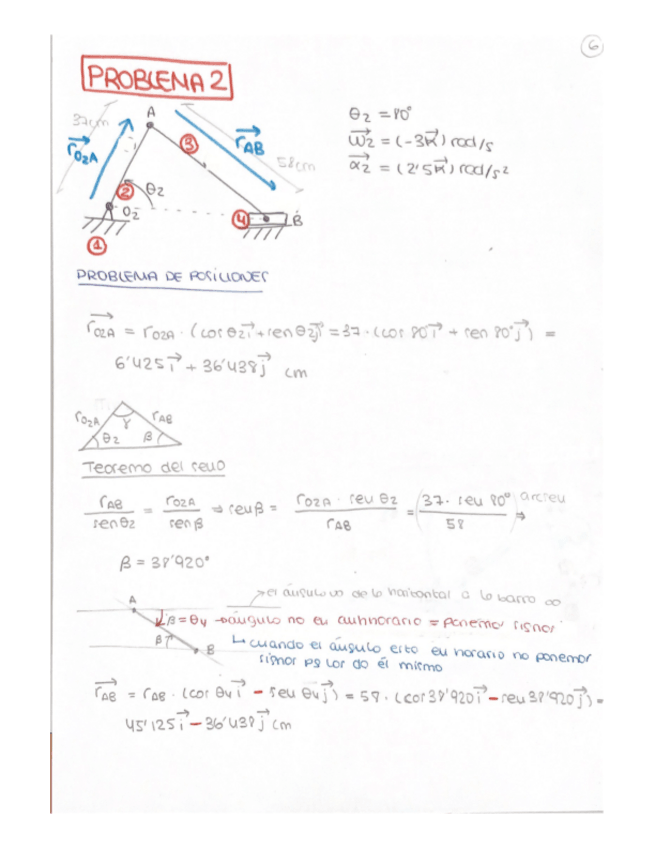 6
PROBLEMA 2
A
37cm
r_O2A
3
r_AB
58cm
2
θ2
O2
4
B
1
θ2 = 80°
ω2 = (-3k) rad/s
α2 = (2'5k) rad/s²
PROBLEMA DE POSICIONES
r_O2A = r_O2A · (cos θ2 i + sen θ2 j) = 37 · (cos 80 i + sen 80° j) =
6'425 i + 36'438 j cm
r_O2A r_AB
γ
θ2 β
Teorema del seno
r_AB / sen θ2 = r_O2A / sen β ⇒ sen β = r_O2A · sen θ2 / r_AB = (37 · sen 80° / 58) arcsen ⇒
β = 38'920°
el ángulo va de la horizontal a la barra
A
β = θ4 → ángulo no en antihorario = ponemos signos
β
B
↳ cuando el ángulo esta en horario no ponemos
signos pq los da él mismo
r_AB = r_AB · (cos θ4 i - sen θ4 j) = 58 · (cos 38'920 i - sen 38'920 j) =
45'125 i - 36'438 j cm